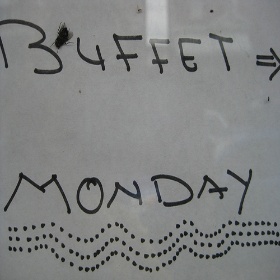 BUFFET ⇒
MONDAY